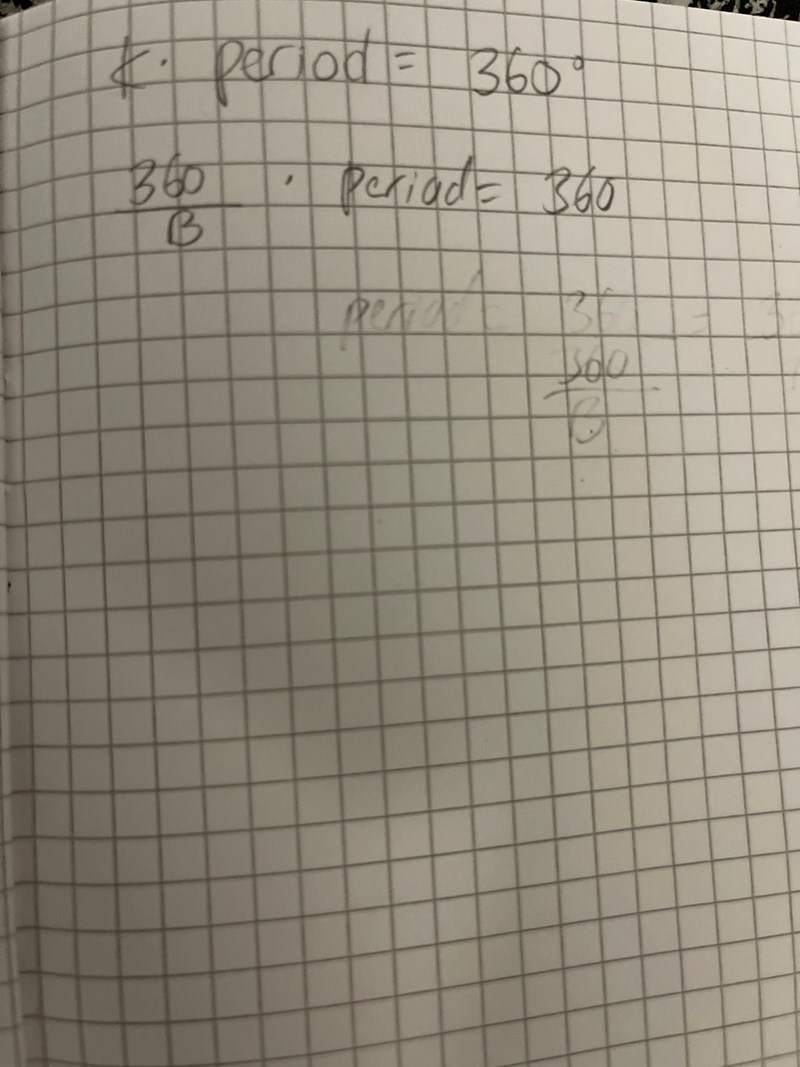 k · period = 360°
360/B · period = 360
period = 36 =
360/B